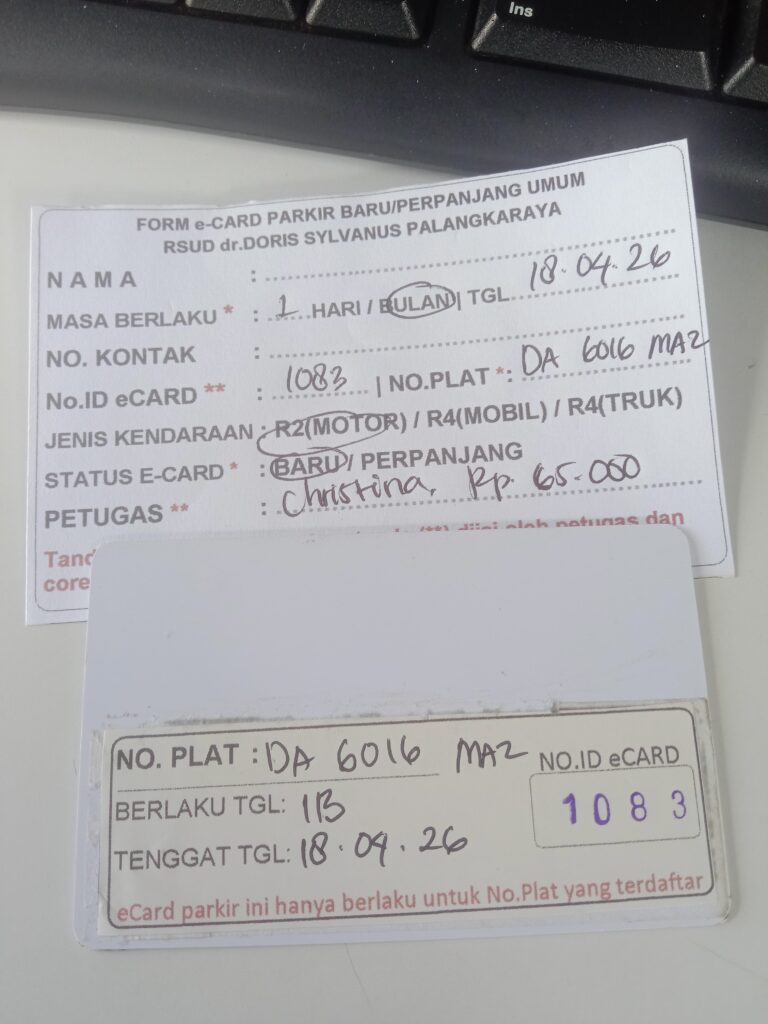 Ins
FORM e-CARD PARKIR BARU/PERPANJANG UMUM
RSUD dr.DORIS SYLVANUS PALANGKARAYA
N A M A :
MASA BERLAKU * : 1 HARI / BULAN | TGL 18.04.26
NO. KONTAK :
No.ID eCARD ** : 1083 | NO.PLAT *: DA 6016 MAZ
JENIS KENDARAAN : R2(MOTOR) / R4(MOBIL) / R4(TRUK)
STATUS E-CARD * : BARU / PERPANJANG
PETUGAS ** : Christina, Rp. 65.000
(**) diisi oleh petugas dan
NO. PLAT : DA 6016 MAZ
NO.ID eCARD
1083
BERLAKU TGL: 1B
TENGGAT TGL: 18.04.26
eCard parkir ini hanya berlaku untuk No.Plat yang terdaftar